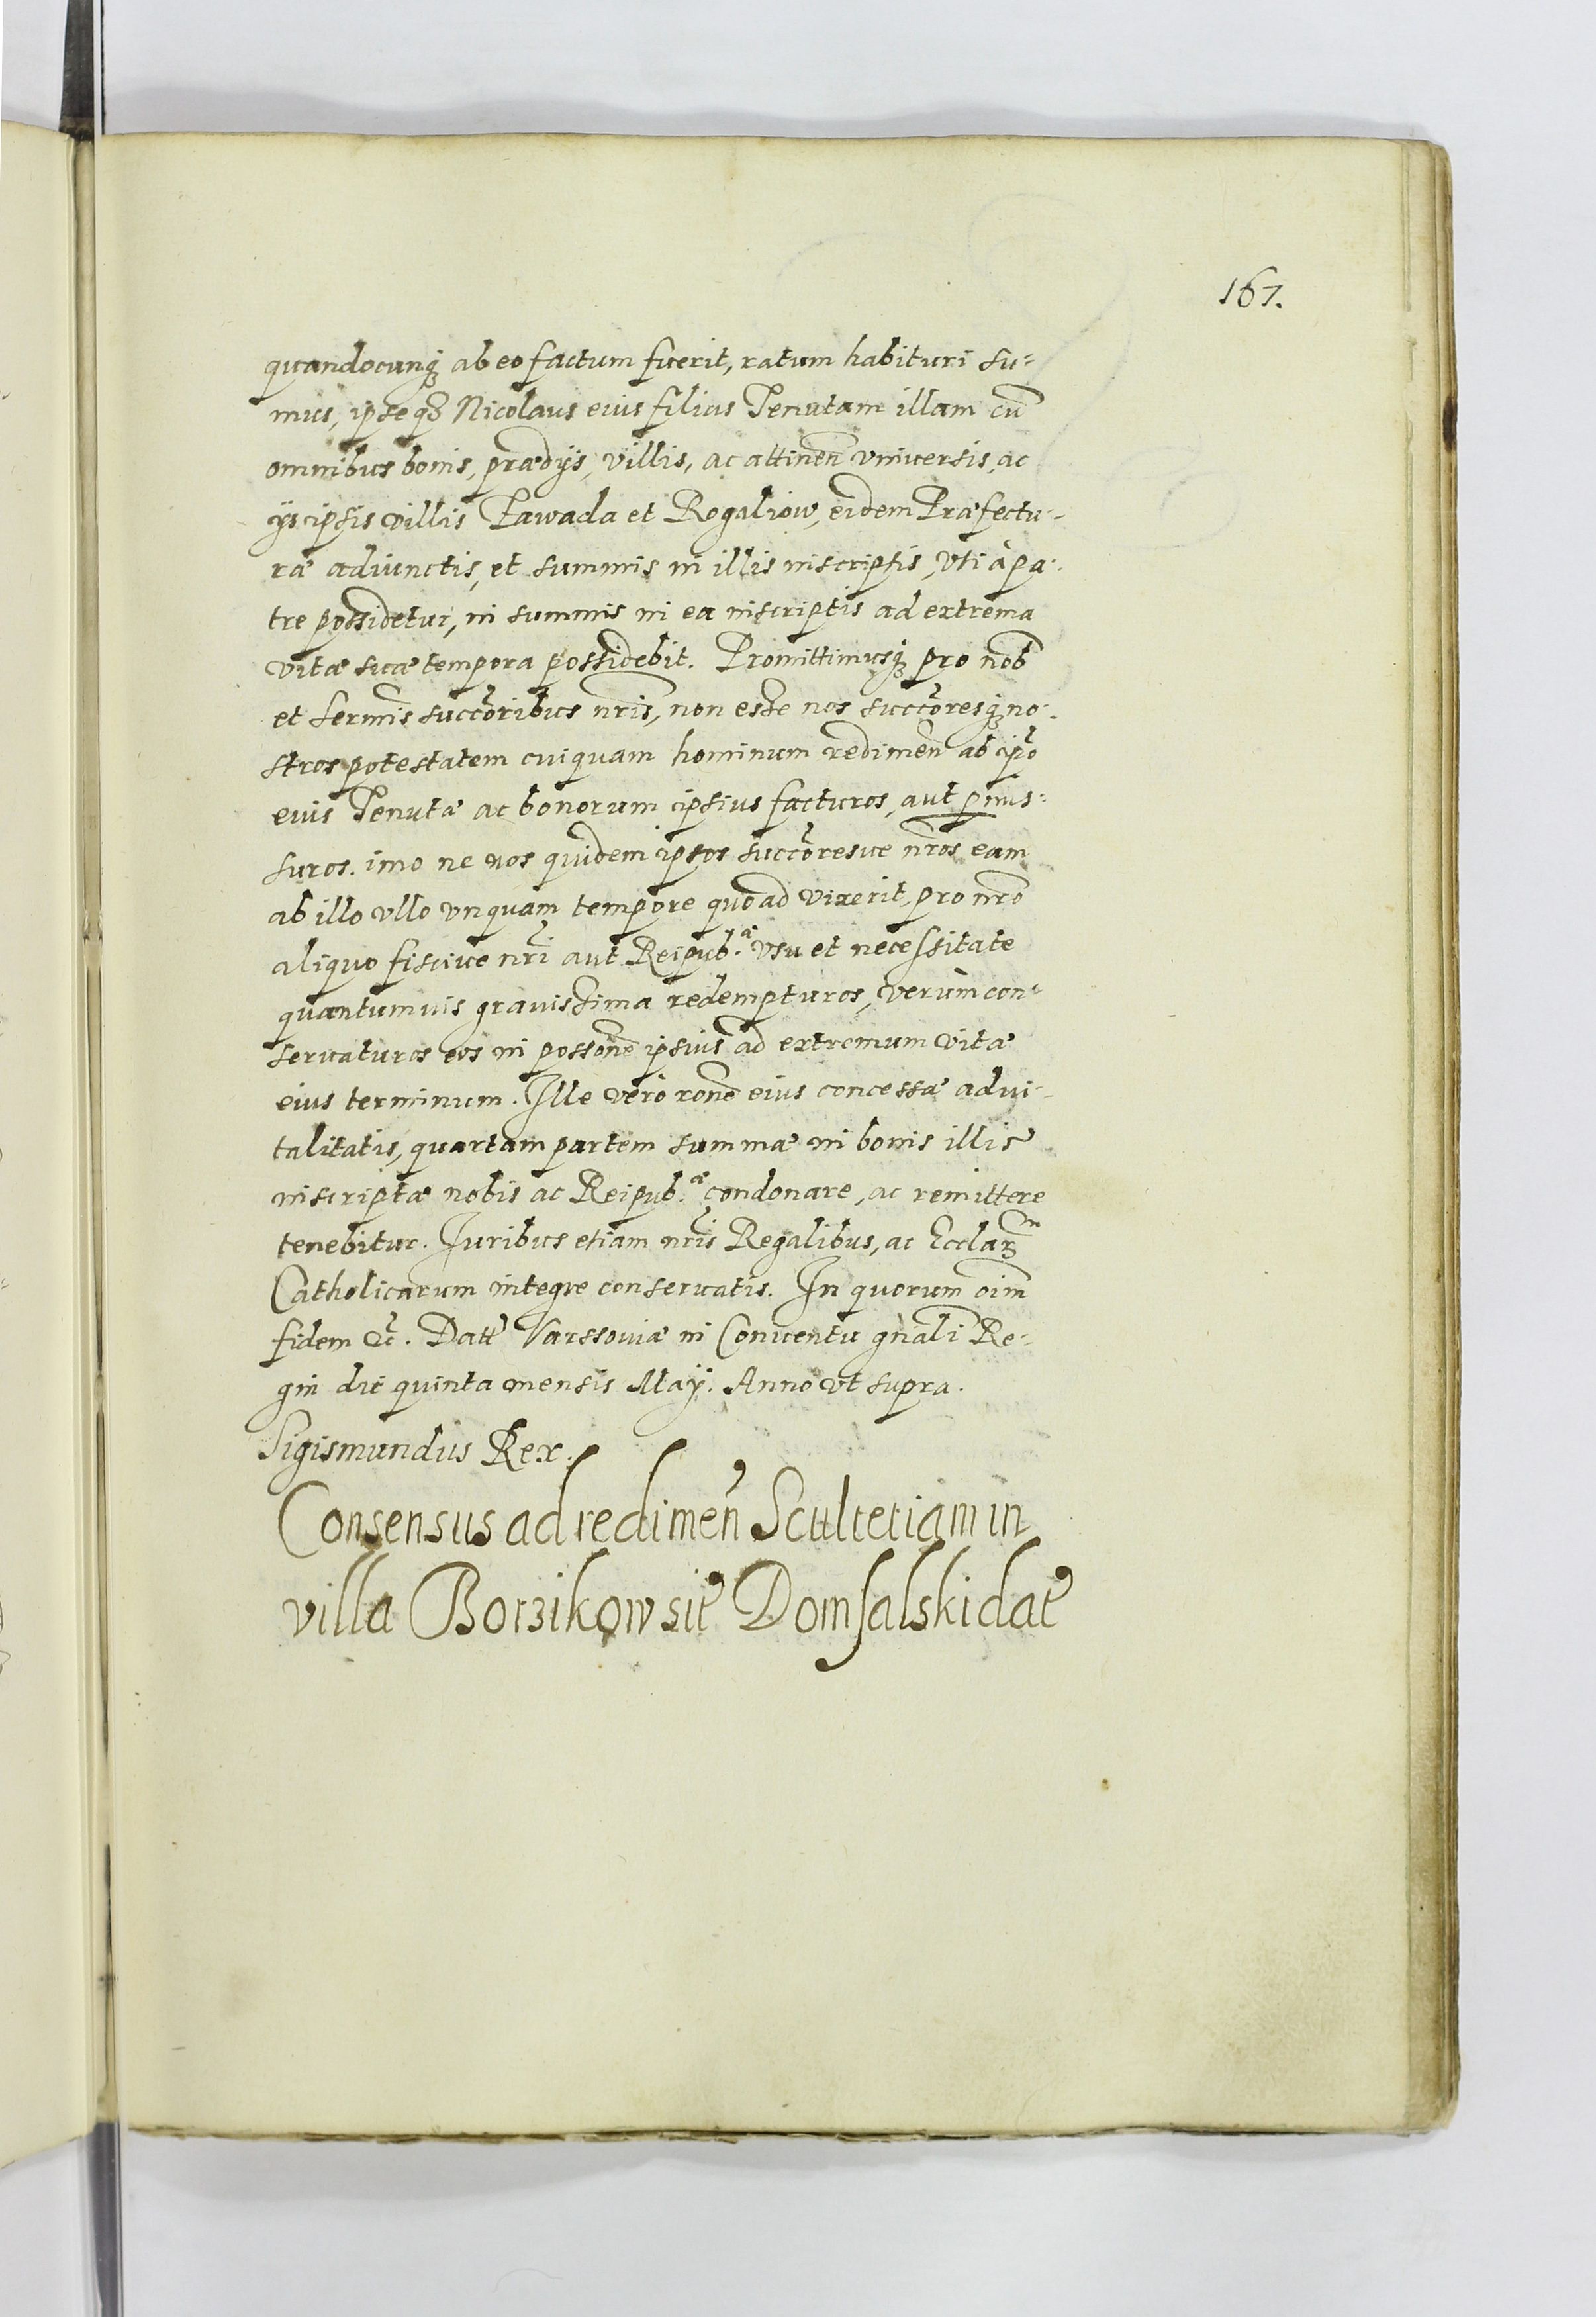 167.
quandocunq́ꝫ ab eo factum fuerit, ratum habituri su⸗
mus, ipse qꝫ Nicolaus eius filius Tenutam illam cũ
omnibus bonis, prædijs, villis, ac attineñ vniuersis, ac
ijs ipsis villis Pawada et Rogaliow, eidem Præfectu⸗
ræ adiunctis, et summis in illis inscriptis, vti à pa⸗
tre possidetur, in summis in ea inscriptis ad extrema
vitæ suæ tempora possidebit. Promittimusq́ꝫ pro nob̃
et Serm̃is succ̃oribus nr̃is, non esse nos succ̃oresq́ꝫ no⸗
stros potestatem cuiquam hominum redimeñ ab ip̃o
eius Tenutæ ac bonorum ipsius facturos, aut ꝑmis⸗
suros. imo ne nos quidem ipsos succ̃oresue nr̃os eam
ab illo vllo vnquam tempore quoad vixerit, pro nr̃o
aliquo fisciue nr̃i aut Reipub.ᵃᵉ vsu et necessitate
quantumuis grauissima redempturos, verùm con⸗
seruaturos eos in possõne ipsius ad extremum vitæ
eius terminum. Ille vero rõne eius concessæ adui⸗
talitatis, quartam partem summæ in bonis illis
inscriptæ nobis ac Reipub.ᵃᵉ condonare, ac remittere
tenebitur. Iuribus etiam nr̃is Regalibus, ac Eccl̃aꝝ
Catholicarum integre conseruatis. In quorum oĩm
fidem &c̃. Datt̃ Varssouiæ in Conuentu gñali Re⸗
gñi die quinta mensis Maij. Anno vt supra.
Sigismundus Rex.
Consensus ad redimeñ Scultetiam in
villa Borzikow sit̃ Domsalski dat̃